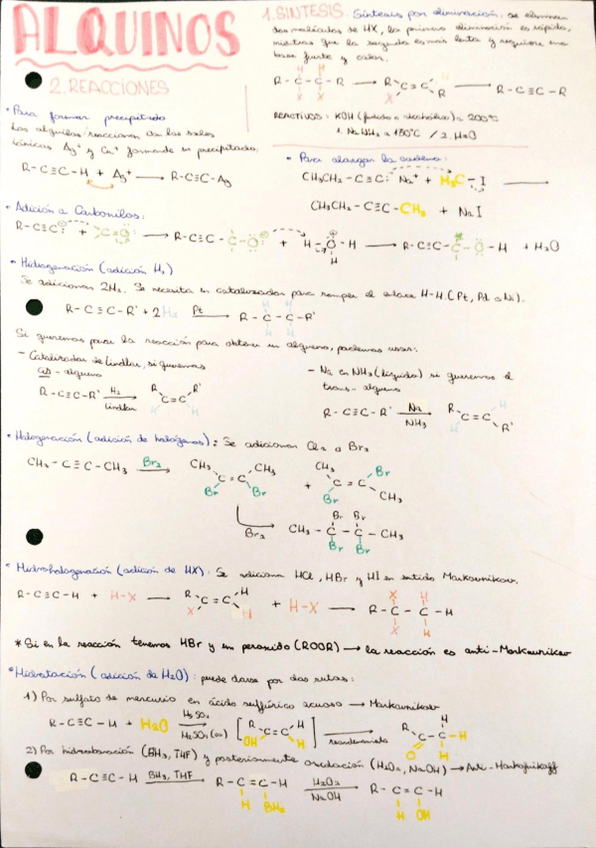 ALQUINOS
1. SINTESIS. Síntesis por eliminación, se eliminan
dos moléculas de HX, la primera eliminación es rápida,
mientras que la segunda es más lenta y requiere una
base fuerte y calor.
H H
R - C - C - R → R C = C H X R → R - C ≡ C - R
X X
REACTIVOS: KOH (fundido o alcohólico) a 200°C
1. NaNH₂ a 150°C / 2. H₂O
2. REACCIONES
• Para formar precipitado
Los alquilos reaccionan con las sales
iónicas Ag⁺ y Cu⁺ formando un precipitado.
R - C ≡ C - H + Ag⁺ → R - C ≡ C - Ag
• Para alargar la cadena:
CH₃CH₂ - C ≡ C: Na⁺ + H₃C - I →
CH₃CH₂ - C ≡ C - CH₃ + NaI
• Adición a Carbonilos:
R - C ≡ C: + C = O → R - C ≡ C - C - O + H - O - H H → R - C ≡ C - C - O - H + H₂O
• Hidrogenación (adición H₂)
Se adicionan 2H₂. Se necesita un catalizador para romper el enlace H-H. (Pt, Pd o Ni).
R - C ≡ C - R' + 2H₂ Pt → R - C - C - R'
H H
H H
Si queremos parar la reacción para obtener un alqueno, podemos usar:
- Catalizador de Lindlar, si queremos
cis - alqueno
R - C ≡ C - R' H₂ Lindlar → R C = C R' H H
- Na en NH₃ (líquido) si queremos el
trans - alqueno
R - C ≡ C - R' Na NH₃ → R C = C H H R'
• Halogenación (adición de halógenos): Se adicionan Cl₂ o Br₂
CH₃ - C ≡ C - CH₃ Br₂ → CH₃ C = C CH₃ Br Br + CH₃ C = C Br Br CH₃
Br₂ → CH₃ - C - C - CH₃
Br Br
Br Br
• Hidrohalogenación (adición de HX): Se adiciona HCl, HBr y HI en sentido Markovnikov.
R - C ≡ C - H + H-X → R C = C H X H + H-X → R - C - C - H
X H
X H
* Si en la reacción tenemos HBr y un peróxido (ROOR) → la reacción es anti-Markovnikov
• Hidratación (adición de H₂O): puede darse por dos rutas:
1) Por sulfato de mercurio en ácido sulfúrico acuoso → Markovnikov
R - C ≡ C - H + H₂O HgSO₄ H₂SO₄ (ac) → [R C = C H OH H] → R C - C - H O H H
2) Por hidroboración (BH₃, THF) y posteriormente oxidación (H₂O₂, NaOH) → Anti-Markovnikoff
R - C ≡ C - H BH₃, THF → R - C = C - H H BH₂ H₂O₂ NaOH → R - C = C - H H OH